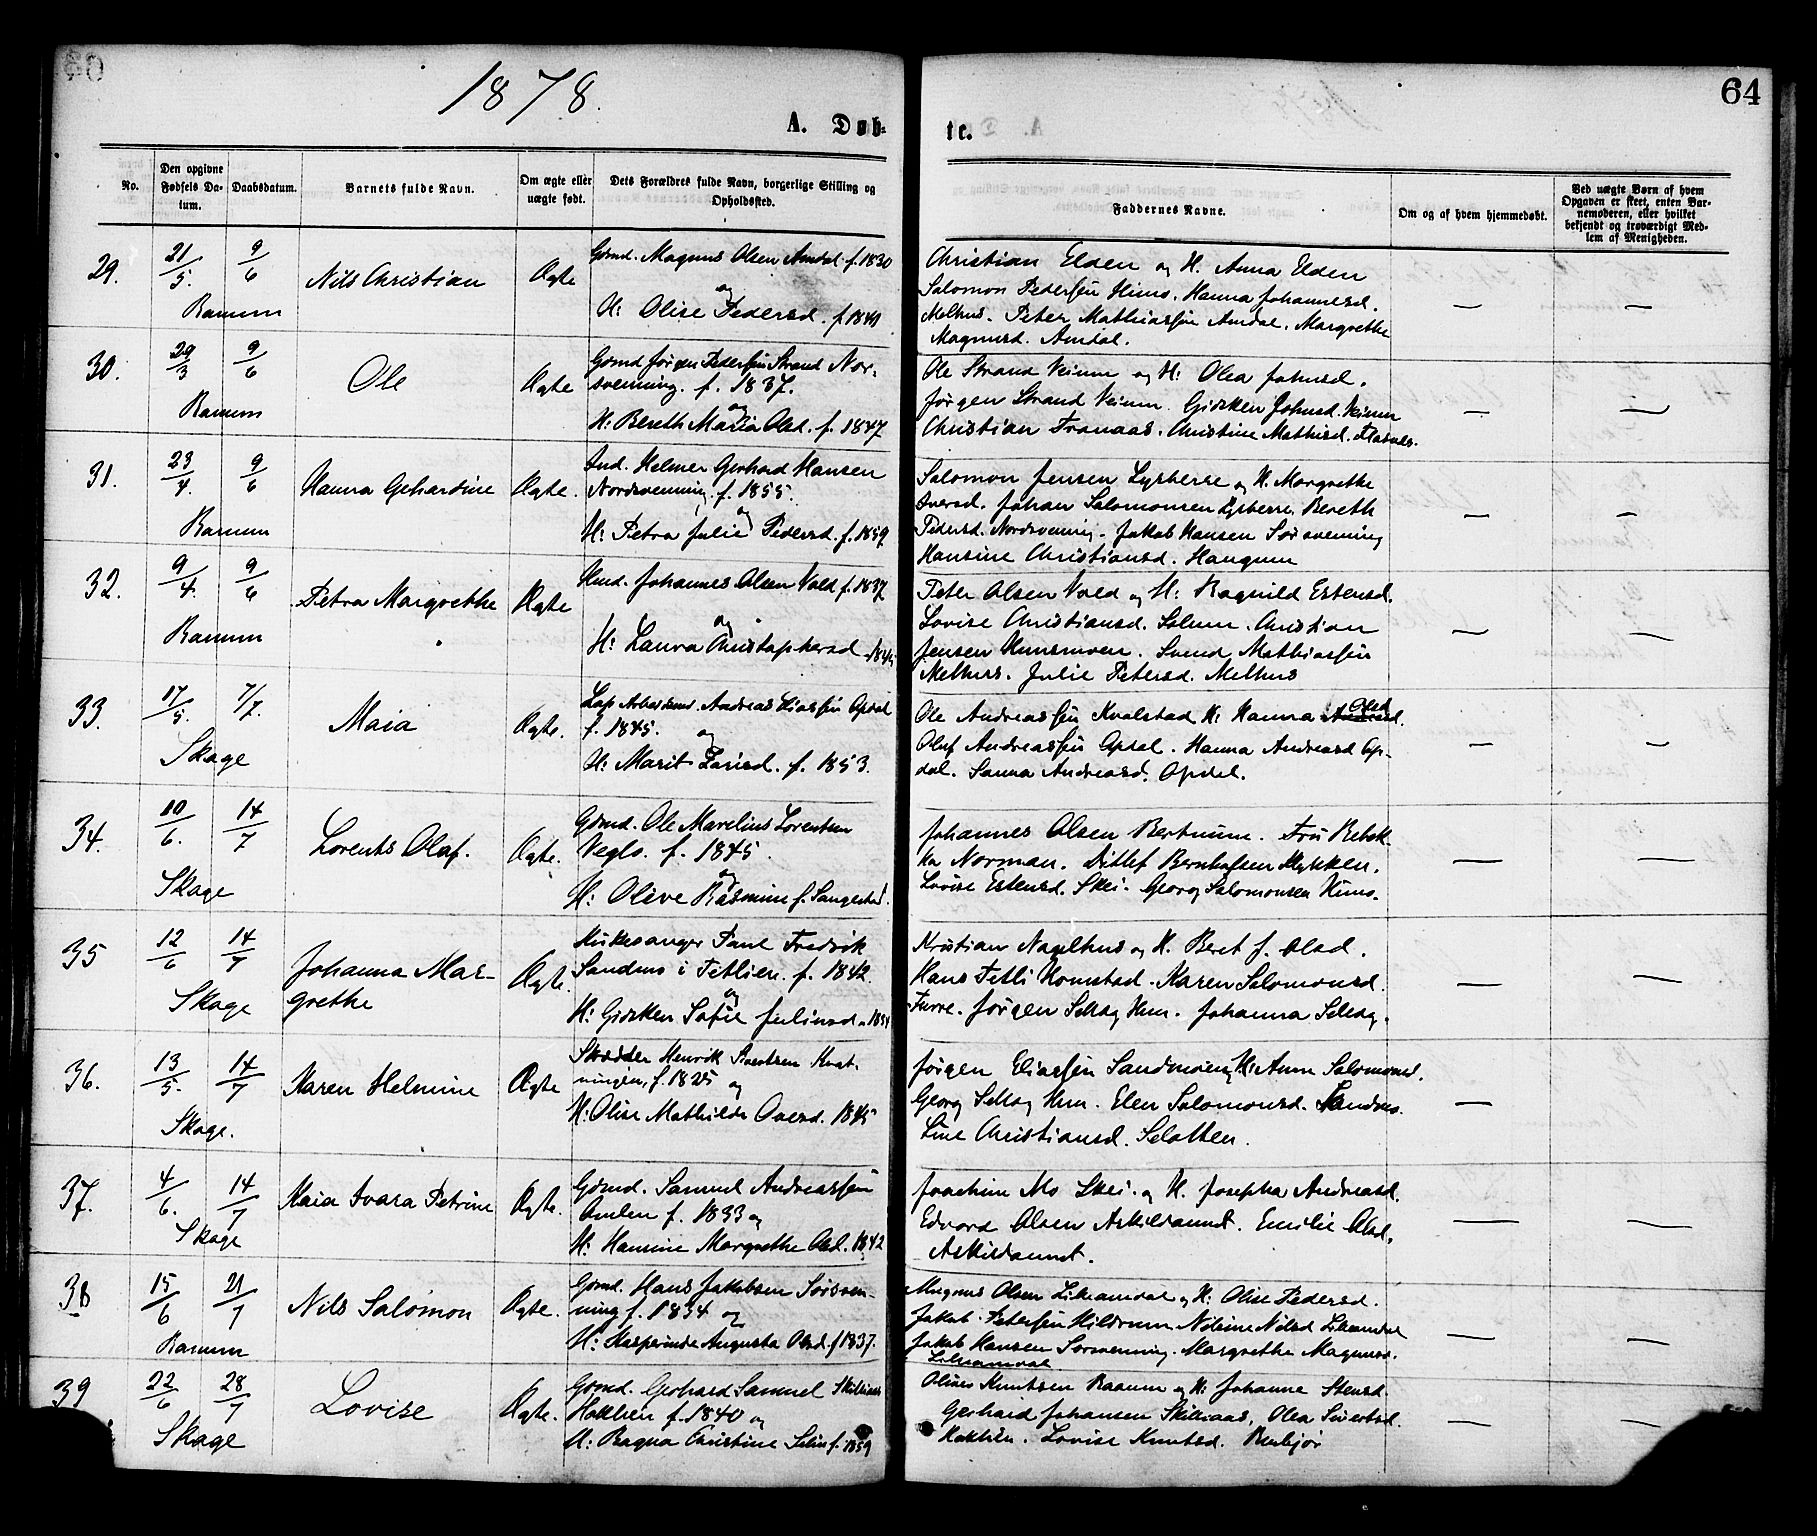 1878.
64
A. Døb-
te.
No.
Den opgivne
Fødsels Da-
tum.
Daabsdatum.
Barnets fulde Navn.
Om ægte eller
uægte født.
Dets Forældres fulde Navn, borgerlige Stilling og
Opholdssted.
Faddernes Navne.
Om og af hvem hjemmedøbt.
Ved uægte Børn af hvem
Opgaven er skeet, enten Bar-
nemoderen, eller hvilket
bekjendt og troværdigt Med-
lem af Menigheden.
29. 21/5. 9/6 Nils Christian Ægte
Ranum
Gmd. Magnus Olsen Amdal f. 1830
og
H: Olise Pedersd. f. 18
Christian Elden og H. Anna Elden
Salomon Pedersen Himo. Hanna Johannesd.
Melhus. Peter Mathiassen Amdal. Margrethe
Magnusd. Amdal.
30. 29/3 9/6 Ole Ægte
Ranum
Gmd Jørgen Pedersen Strand Nor-
svenning. f. 1837.
og
H: Bereth Maria Olsd. f. 1847
Ole Strand Veium og H: Olea Johnsd.
Jørgen Strand Veium. Gidsken Johnsd. Veium
Christian Tranaas. Christine Mathisd. Flasnes.
31. 23/4. 9/6 Hanna Gehardine Ægte.
Ranum
Ind. Helmer Gerhard Hansen
Nordsvenning. f. 1855.
og
H: Petra Julie Pedersd. f. 1859
Salomon Jensen Lysberre og H. Margrethe
Iversd. Johan Salomonsen Lysberre. Bereth
Pedersd. Nordsvenning. Jakob Hansen Sørsvenning
Hansine Christiansd. Haugum
32. 9/4. 9/6 Petra Margrethe Ægte
Ranum
Johannes Olsen Vold f. 1837
og
H: Laura Christophersd
Peter Olsen Vold og H: Ragnild Estensd.
Lovise Christiansd. Solum. Christian
Jensen Humsmoen. Svend Mathiassen
Melhus. Julie Petersd. Melhus
33. 17/5. 7/7. Maia Ægte.
Skage
Lap Andreas Liassen Opdal
f. 1845. og
H: Marit Larisd. f. 1853.
Ole Andreassen Kvalstad H: Hanna Olsd.
Oluf Andreassen Opdal. Hanna Andreasd Op-
dal. Sanna Andreasd. Opdal.
34. 10/6. 14/7 Lorents Olaf. Ægte.
Skage
Gdmd. Ole Marelius Lorentsen
Veglo. f. 1845.
og
H: Olive Rasmine f.
Johannes Olsen Bertnum. Fru Rebek-
ka Norman. Ditlef Bernhofsen Mykken.
Lovise Estensd. Skei. Georg Salomonsen Himo.
35 12/6 14/7 Johanna Mar-
grethe Ægte.
Skage
Kirkesanger Paul Fredrik
Sandmo i Tetlien. f. 1842.
og
H: Gidsken Sofie Juliusd
Kristian Nagelhus og H. Beret J. Olsd.
Hans Tetli Homstad. Karen Salomonsd.
Furre. Jørgen Selsag Hun. Johanna Selsag.
36. 13/5. 14/7 Karen Helmine Ægte
Skage.
Skrædder Henrik Sivertsen Kvat-
ningen, f. 1825 og
H: Olise Mathilde Ovesd. 1845
Jørgen Eliassen Sandmoen, H: Anne Salomonsd.
Georg Selsag Hun. Elen Salomonsd. Sandmo.
Line Christiansd. Slotten.
37. 4/6. 14/7 Kaia Ivara Petrine Ægte.
Skage
Gdmd. Samuel Andreassen
Amlen f. 1833 og
H: Hansine Margrethe Olsd. 1842
Joachim Mo Skei. og H. Josepha Andreasd.
Edvard Olsen Askildaunet. Emilie Olsd.
Askildaunet.
38 15/6 21/7 Nils Salomon Ægte.
Ranum
Gdmd. Hans Jakobsen Sørsven-
ning f. 1834 og
H: Kasperinde Augusta Olsd. f 1837.
Magnus Olsen Lilleamdal og H: Olise Pedersd.
Jakob Petersen Hildrum Nilsine Nilsd Lilleamdal
Jakob Hansen Sørsvenning. Margrethe Magnusd.
Lilleamdal
39 22/6 28/7 Lovise Ægte.
Skage
Gdmd. Gerhard Samuel Skilliaas
Haklien f. 1840 og
H: Ragna Christine f. 1859
Olines Knutsen Raaum og H: Johanne Stensd.
Gerhard Johansen Skilliaas. Olea Sivertsd.
Haklien. Lovise Knutsd.